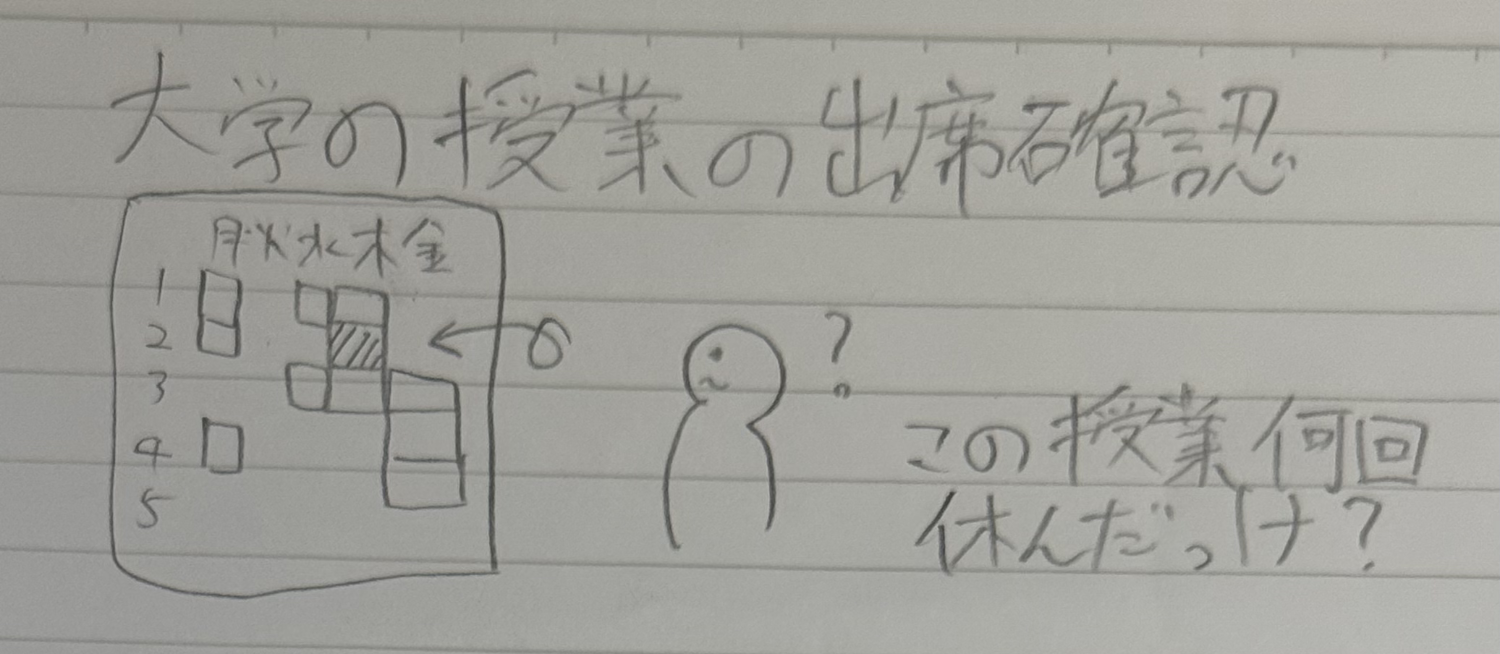 大学の授業の出席確認
月火水木金
1
2
3
4
5
?
この授業何回
休んだっけ?